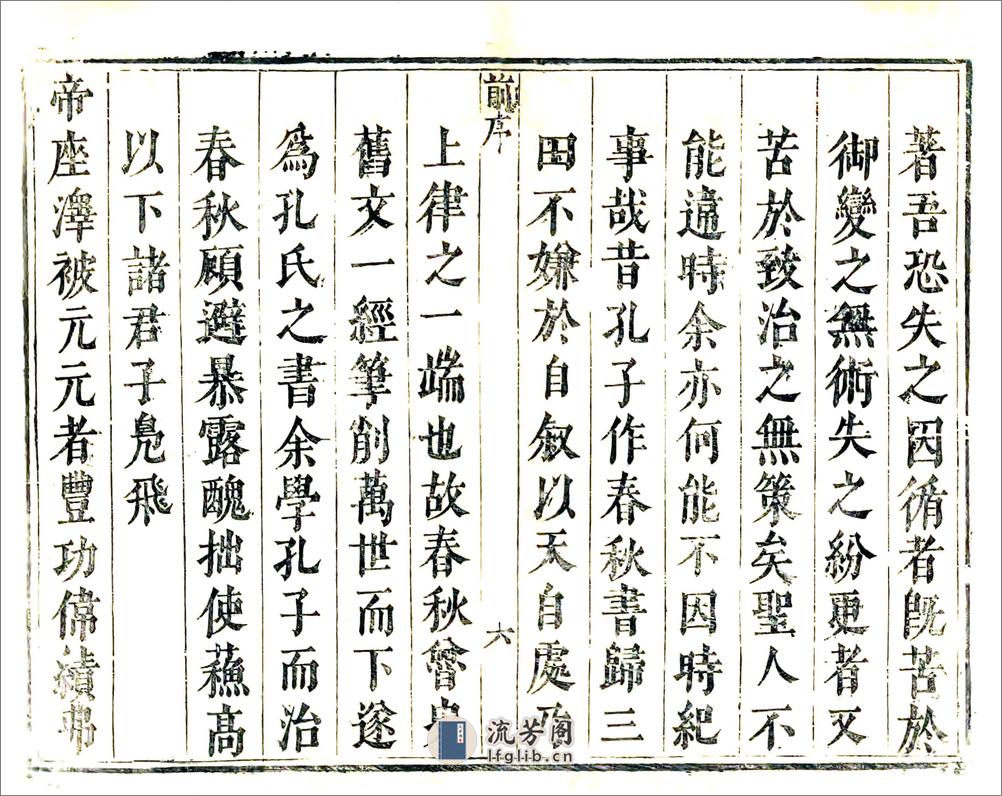 著吾恐失之因循者旣苦於
御變之無術失之紛更者又
苦於致治之無策矣聖人不
能違時余亦何能不因時紀
事哉昔孔子作春秋書歸三
田不嫌於自叙以天自處乃
前序
六
上律之一端也故春秋魯史
舊文一經筆削萬世而下遂
爲孔氏之書余學孔子而治
春秋顧避暴露醜拙使蘓高
以下諸君子鳧飛
帝座澤被元元者豐功偉績弗
流芳阁
lfglib.com